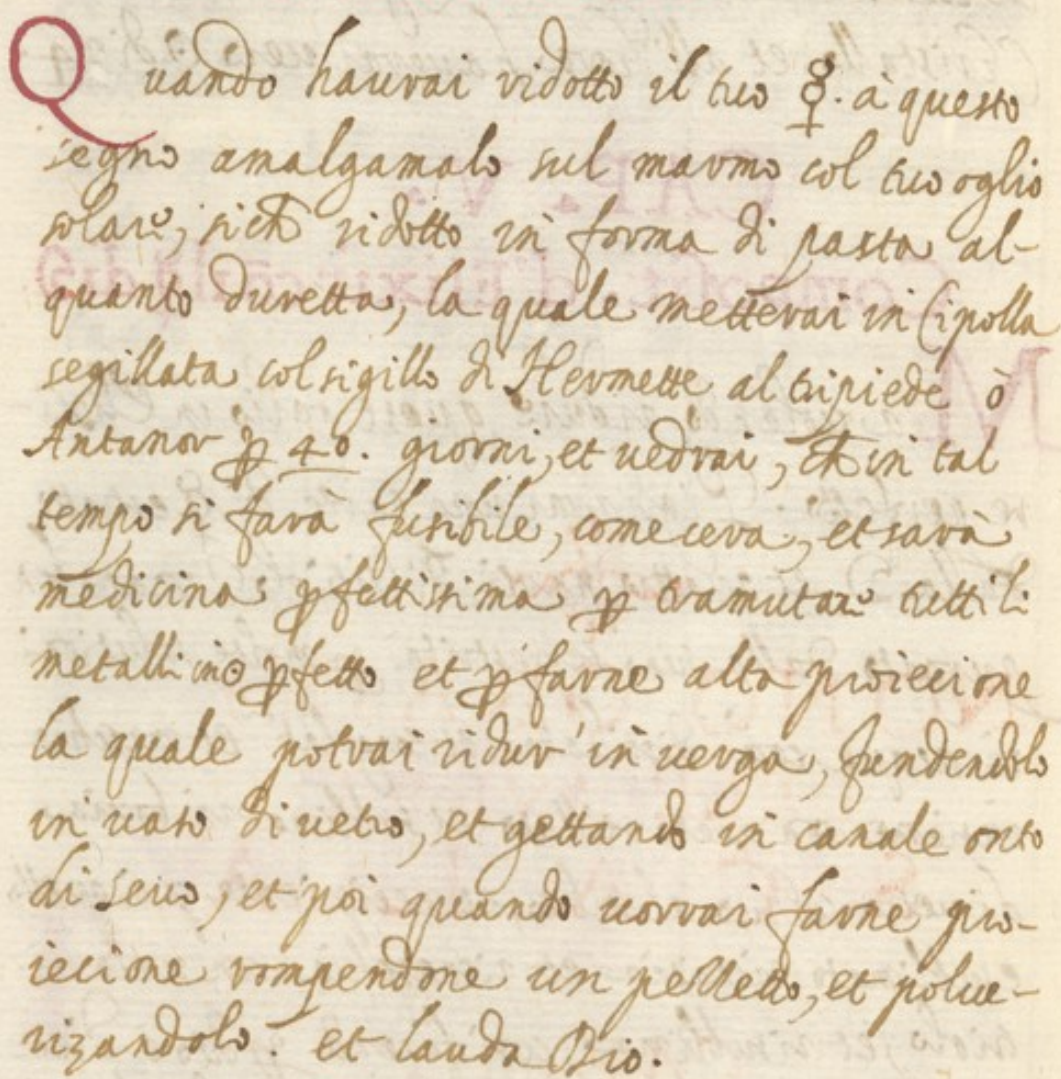 Quando haurai ridotto il tuo ☿. à questo
segno amalgamalo sul marmo col tuo oglio
solare, sich̃ ridotto in forma di pasta al-
quanto duretta, la quale metterai in Cipolla
segillata col sigillo di Hermette al tripiede ò
Antanor ꝑ 40. giorni, et uedrai, ch̃ in tal
tempo si farà fusibile, come cera, et sarà
medicina ꝑfettissima ꝑ tramutare tutti li
metalli in ☉ ꝑfetto et ꝑ farne alta proiecione
la quale potrai ridur' in uerga, fundendolo
in uaso di uetro, et gettando in canale onto
di seuo, et poi quando uorrai farne pro-
iecione rompendone un pezzetto, et polue-
rizandolo. et lauda Dio.